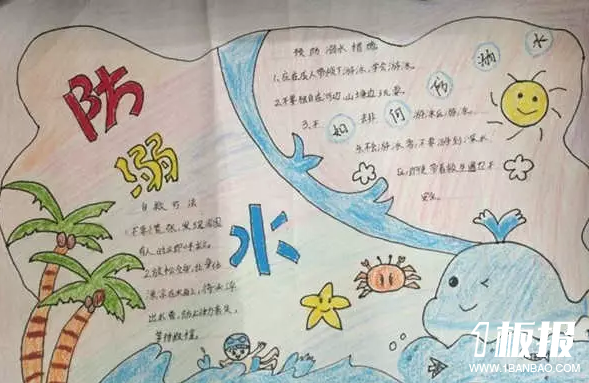 防
溺
水
预防溺水措施
1.应在成人带领下游泳,学会游泳。
2.不要独自在河边、山塘边玩耍。
3.不 非 游泳区游泳。
如何防溺水
4.不会游泳者,不要游到深水
区,即使带着救生圈也不
安全。
自救方法
1.不要慌张,发现周围
有人时立即呼救。
2.放松全身,让身体
漂浮在水面上,待
出水面,防止体力丧失,
等待救援。
1板报
WWW.1BANBAO.COM